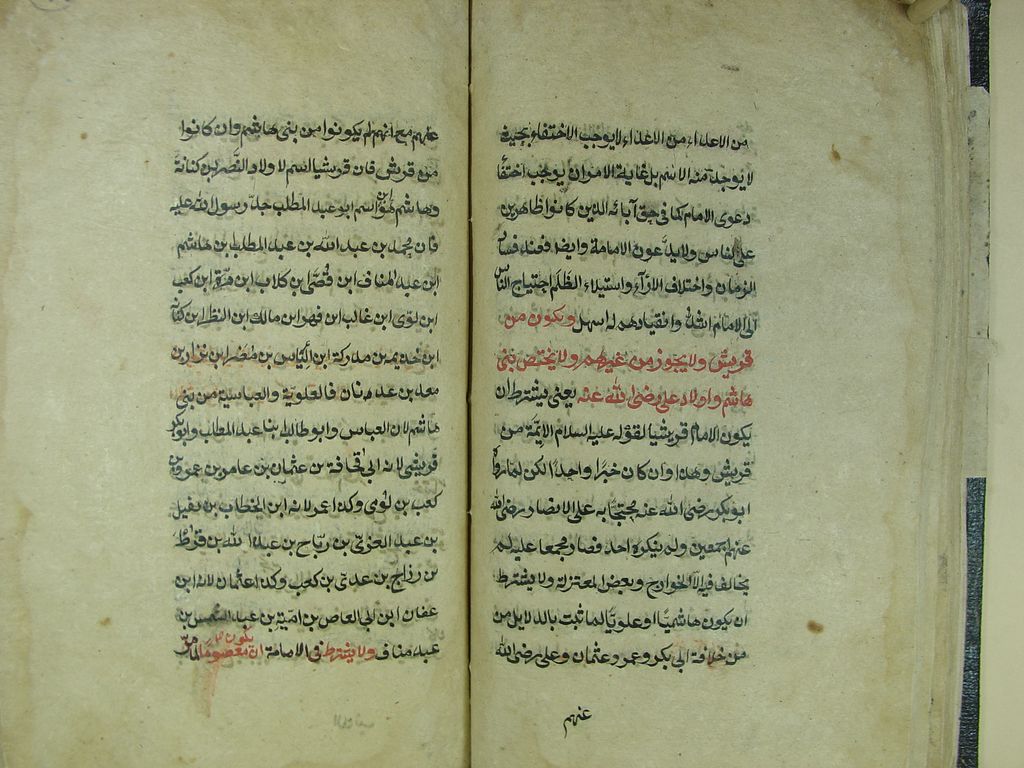 من الاعداء من الاعداء لا يوجب الاختفاء بحيث
لا يوجد منه الا الاسم بل غاية الامر ان يوجب اختفاء
دعوى الامام كما فى حق آبائه الذين كانوا ظاهرين
على الناس ولا يدّعون الامامة وايضا فعند فساد
الزمان واختلاف الارآء واستيلاء الظلم احتياج الناس
الى الامام اشدّ وانقيادهم له اسهل ويكون من
قريش ولا يجوز من غيرهم ولا يختص ببنى
هاشم واولاد على رضى الله عنه يعنى يشترط ان
يكون الامام قريشيا لقوله عليه السلام الائمّة من
قريش وهذا وان كان خبرا واحدا لكن لما رواه
ابو بكر رضى الله عنه محتجّا به على الانصار رضى الله
عنهم اجمعين ولم ينكره احد فصار مجمعا عليه لم
يخالف فيه الّا الخوارج وبعض المعتزلة ولا يشترط
ان يكون هاشميّا او علويّا لما ثبت بالدلايل من
من خلافة ابى بكر وعمر وعثمان وعلى رضى الله
عنهم
عنهم مع انهم لم يكونوا من بنى هاشم وان كانوا
من قريش فان قريشيا اسم لاولاد النضر بن كنانة
وهاشم هو اسم ابو عبد المطلب جدّ رسول الله عليه
فان محمد بن عبد الله بن عبد المطلب بن هاشم
ابن عبد المناف ابن قُصَّى بن كلاب ابن مرّة ابن كعب
ابن لوّى ابن غالب ابن فهر ابن مالك ابن النظر ابن كنانة
ابن خديمه بن مدركة ابن الياس بن مُضَر ابن نزار بن
معد بن عدنان فالعلوية والعباسية من بنى
هاشم لان العباس وابو طالب ابنا عبد المطلب وابو بكر
قريشى لانه ابى قحافة بن عثمان بن عامر بن عمرو بن
كعب بن لوّى وكذا عمر لانه ابن الخطاب بن نفيل
بن عبد العزّى بن ربّاح بن عبد الله بن قرط
بن رزاح بن عدىّ بن كعب وكذا عثمان لانه ابن
عفان ابن ابى العاص بن اميّة بن عبد الشمس بن
عبد مناف ولا يشترط فى الامامة ان يكون معصومًا لما مرّ